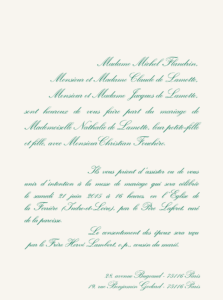 Madame Michel Flandrin,
Monsieur et Madame Claude de Lamotte,
Monsieur et Madame Jacques de Lamotte,
sont heureux de vous faire part du mariage de
Mademoiselle Nathalie de Lamotte, leur petite-fille
et fille, avec Monsieur Christian Fouchère.
Ils vous prient d'assister ou de vous
unir d'intention à la messe de mariage qui sera célébrée
le samedi 21 juin 2013 à 16 heures en l'Église de
la Ferrière (Indre-et-Loire), par le Père Lafont, curé
de la paroisse.
Le consentement des époux sera reçu
par le Frère Hervé Lambert, s.p., cousin du marié.
28 avenue Bugeaud - 75016 Paris
12, rue Benjamin Godard - 75016 Paris